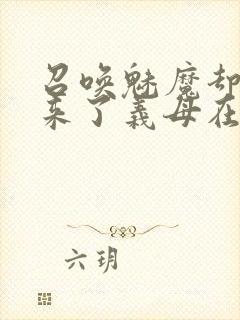 召唤魅魔却
来了義母在
六玥